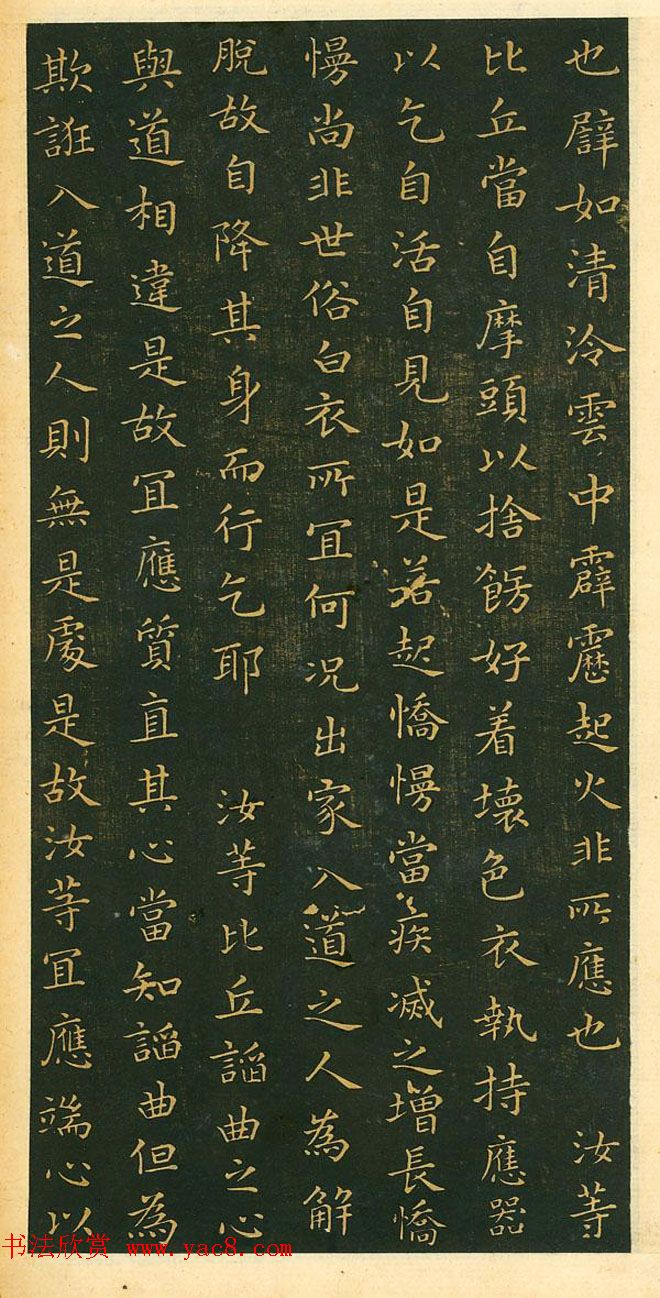 也礕如清泠雲中霹靂起火非所應也　汝等
比丘當自摩頭以捨餝好着壞色衣執持應器
以乞自活自見如是若起憍慢當疾滅之增長憍
慢尚非世俗白衣所冝何況出家入道之人為解
脫故自降其身而行乞耶　汝等比丘謟曲之心
與道相違是故冝應質直其心當知謟曲但為
欺誑入道之人則無是處是故汝等冝應端心以
书法欣赏 www.yac8.com